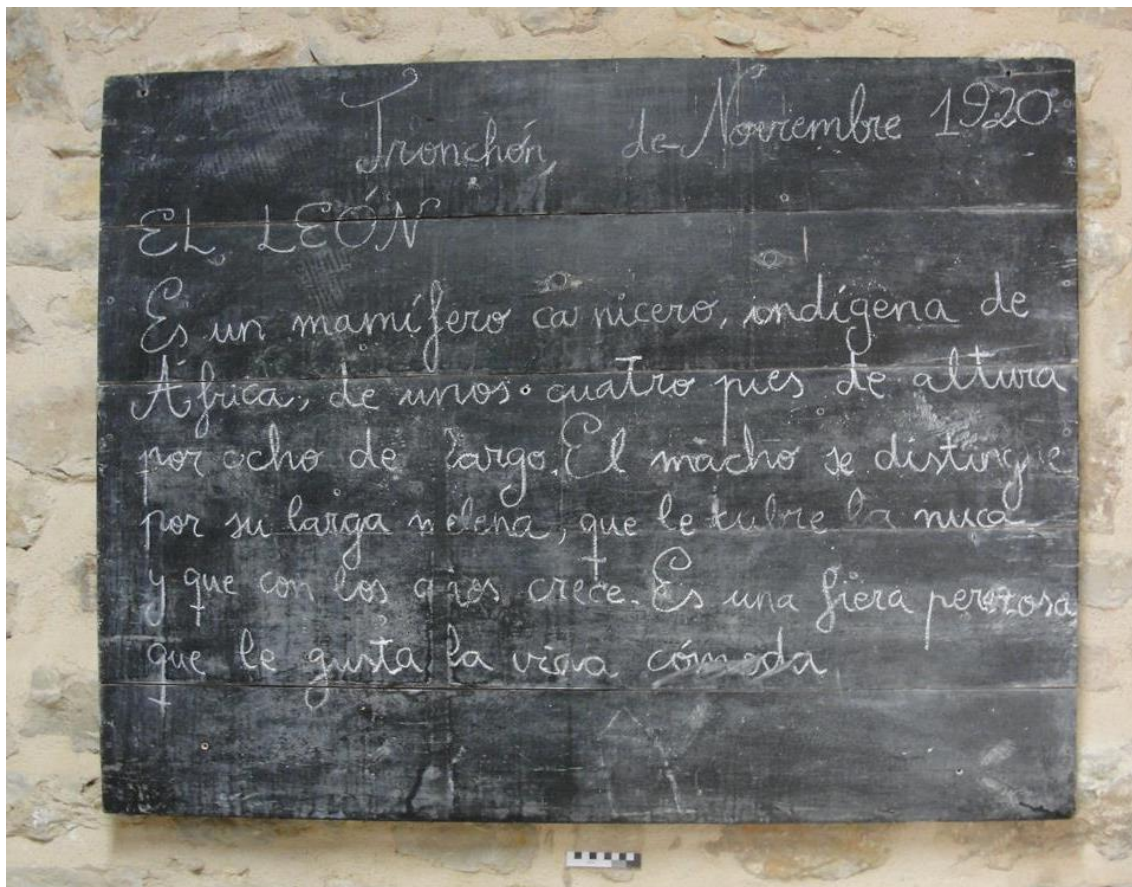 Tronchón, de Noviembre 1920
EL LEÓN
Es un mamífero carnicero, indígena de
África, de unos cuatro pies de altura
por ocho de largo. El macho se distingue
por su larga melena, que le cubre la nuca
y que con los años crece. Es una fiera perezosa
que le gusta la vida cómoda